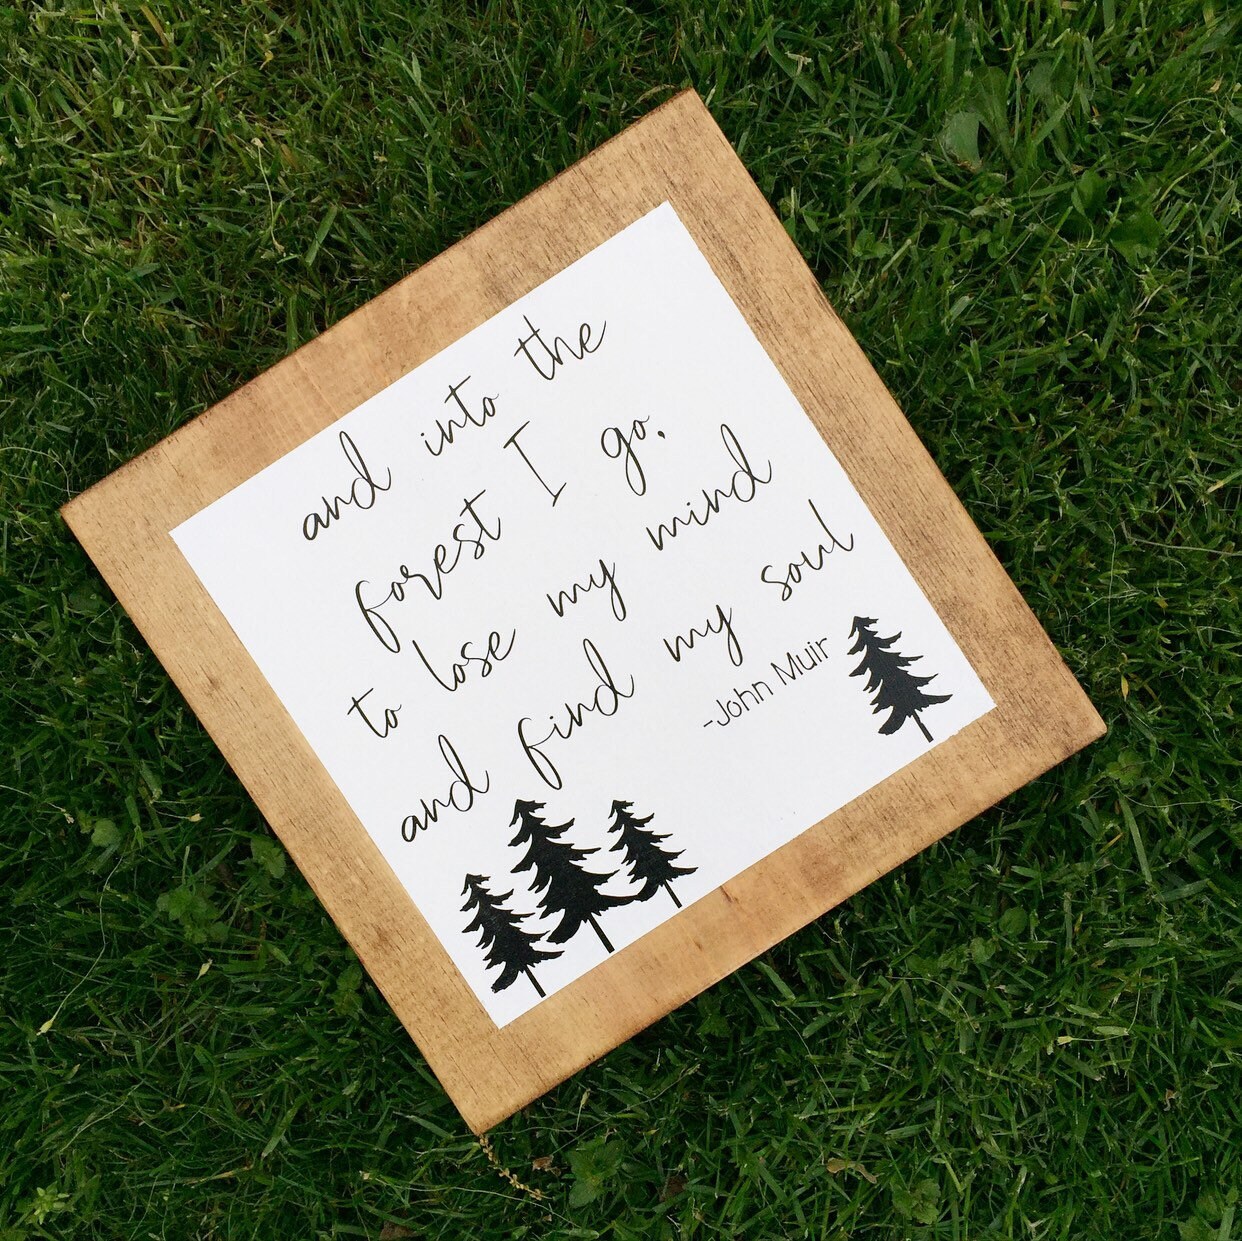 and into the
forest I go,
to lose my mind
and find my soul
-John Muir